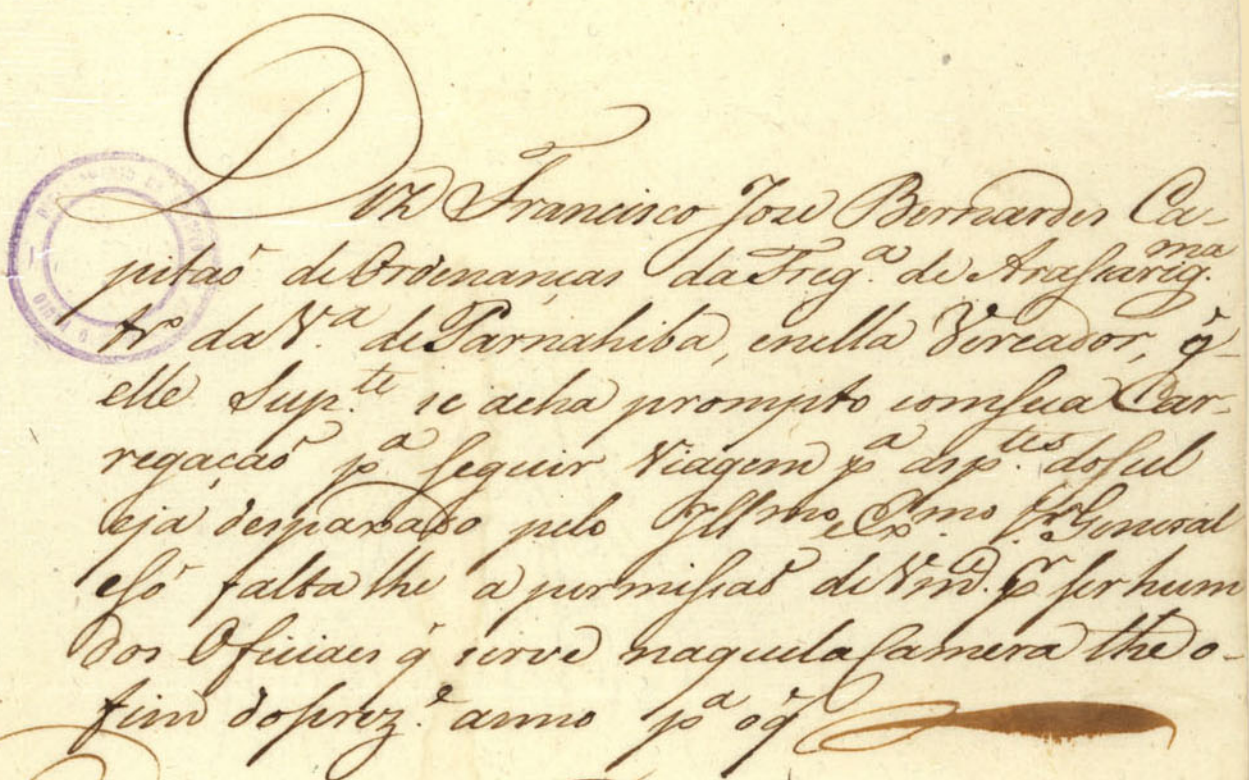 Diz Francisco Jose Bernardes Ca-
pitaõ de Ordenanças da Freg.ª de Arasarig.ma
Tr.º da V.ª de Parnahiba, enella Vereador, q̃
elle Sup.te se acha prompto comsua Car-
regaçaõ p.ª seguir Viagem p.ª asp.tes dosul
ejá desparado pelo Ill.mo eEx.mo Sr. General
esó falta lhe a permissaõ de Vm.ce p.r ser hum
dos Oficiaes q̃ serve naquela Camera thé o-
fim doprez.e anno p.ª oq̃